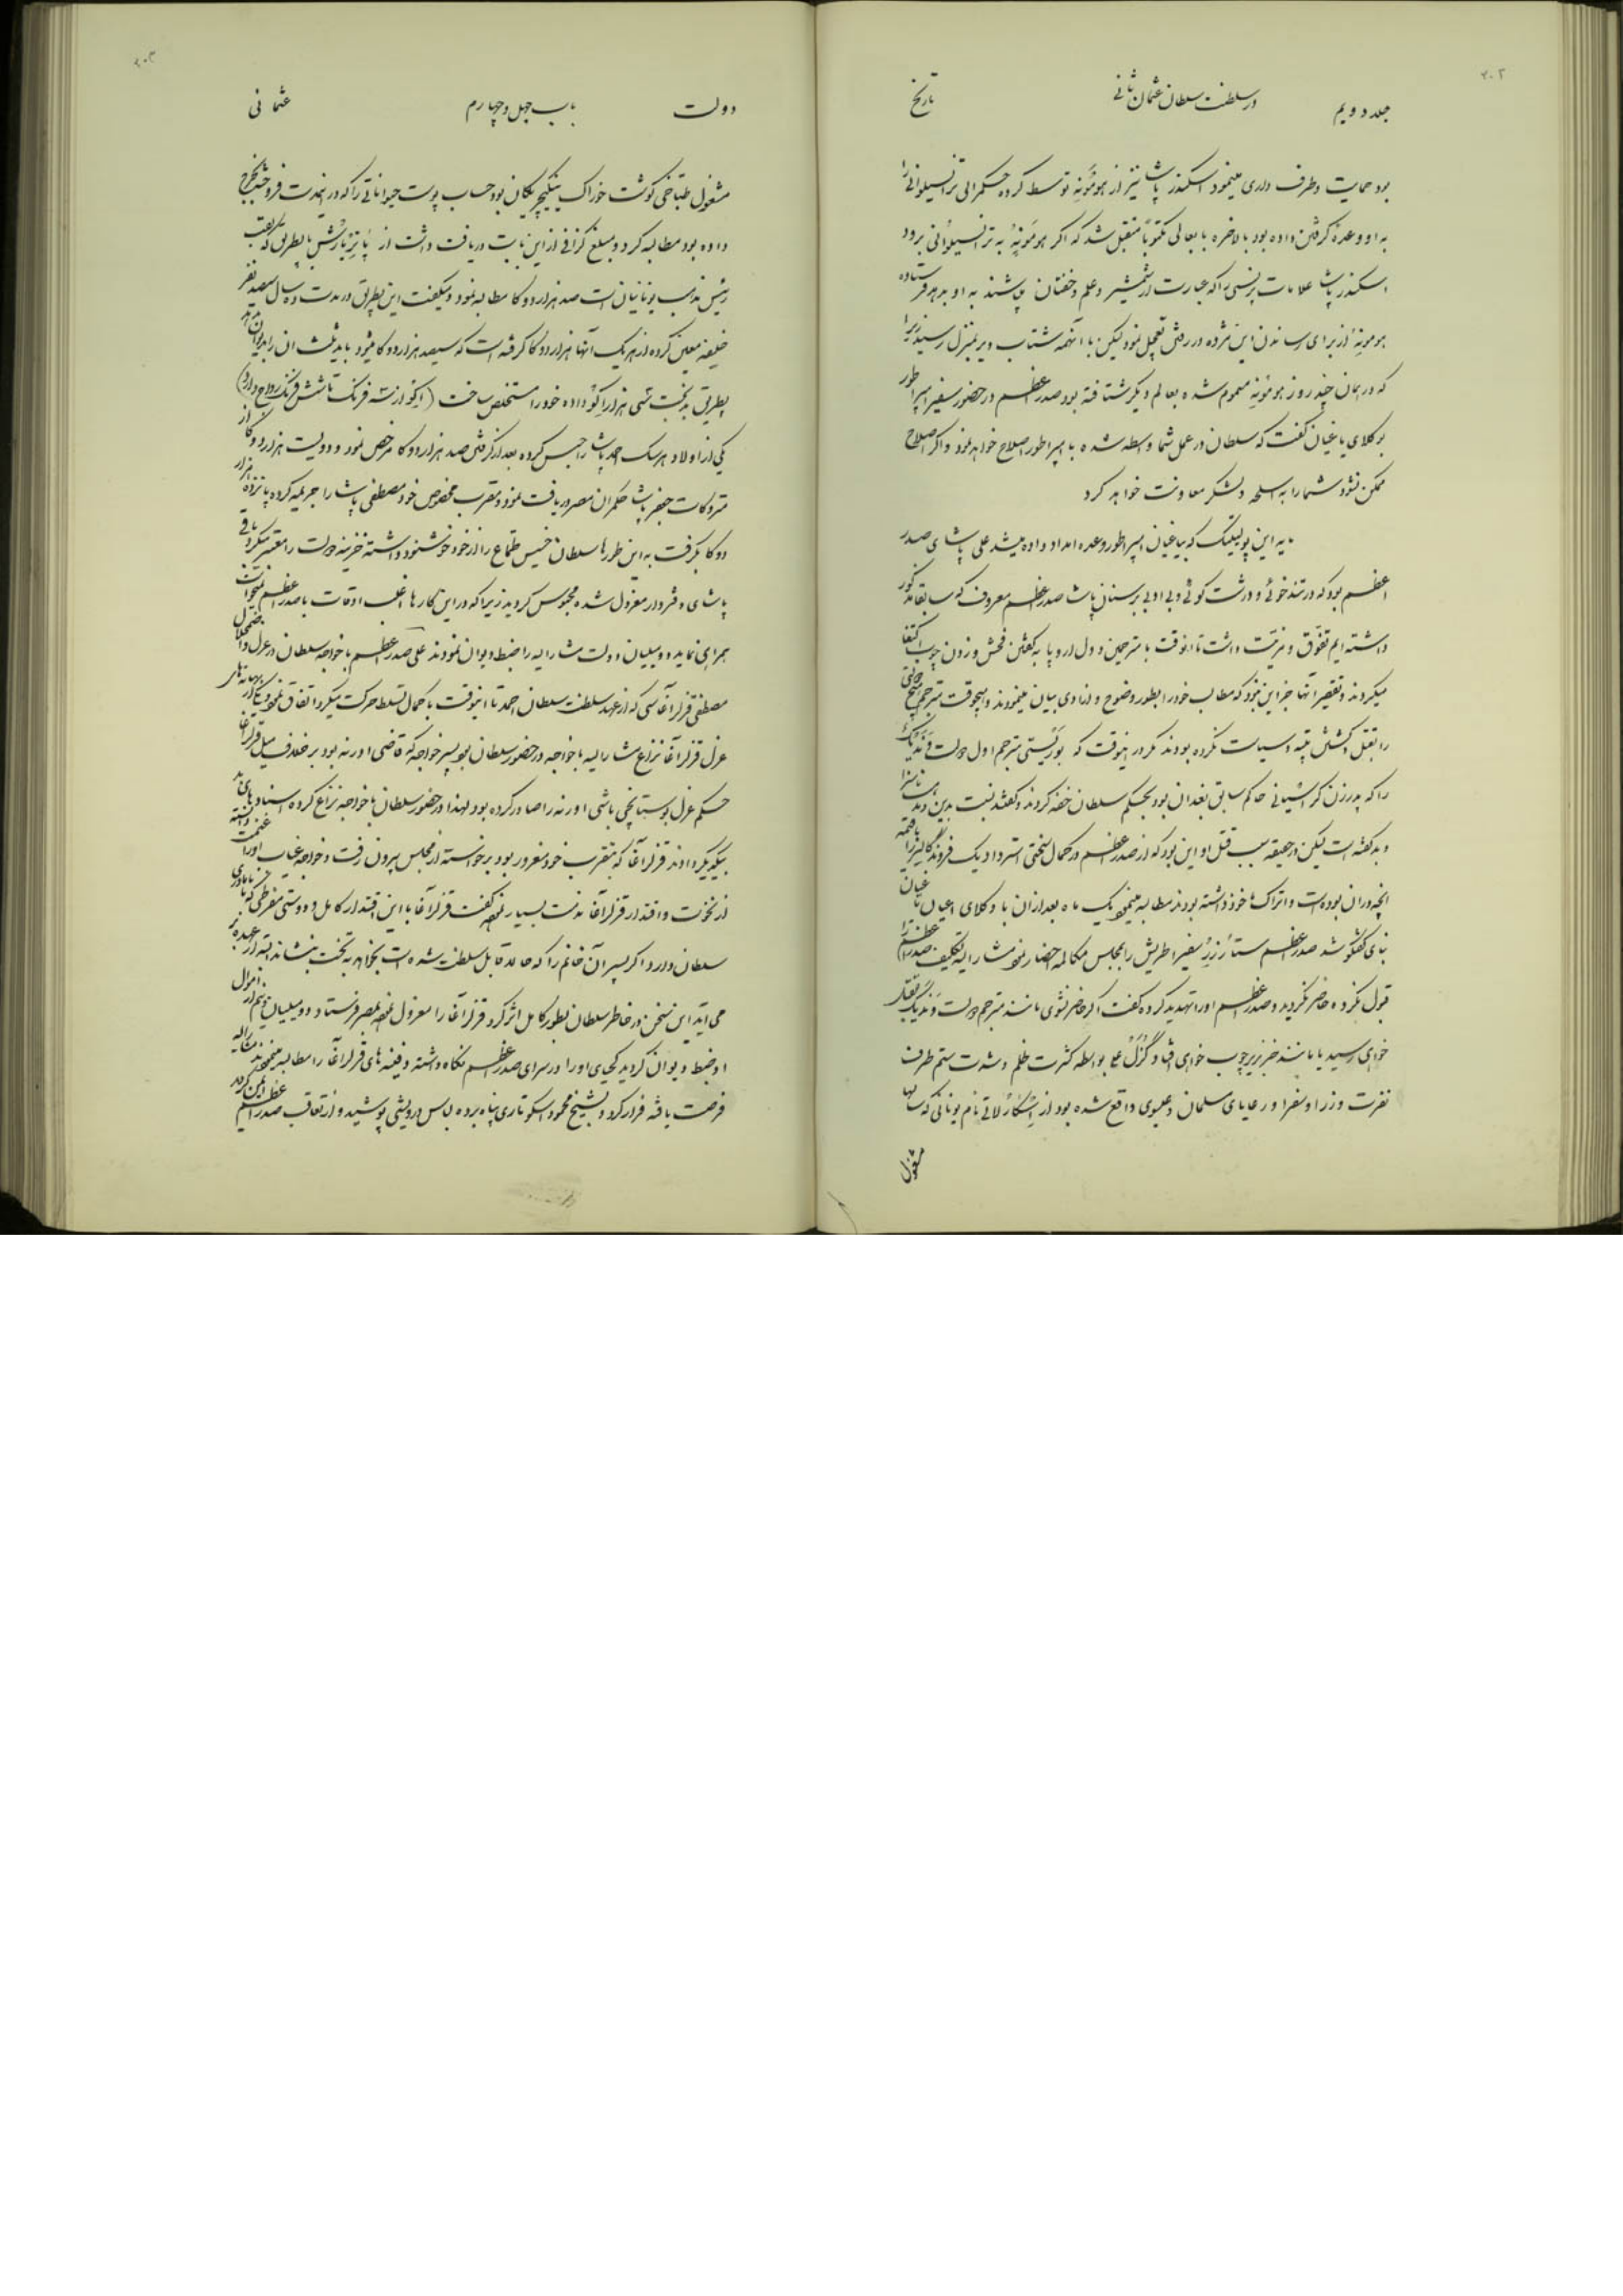 ۲۰۲
جلد دویم
در سلطنت سلطان عثمان ثانی
تاریخ
بود حمایت و طرف داری مینمود اسکندر پاشا نیز از هومونه توسط کرده حکمرانی ترانسیلوانی را
به او وعده گرفتن داده بود بالاخره بابعالی مکتوباً متقبل شد که اگر هومونه به ترانسیلوانی برود
اسکندر پاشا علامات پرنسی را که عبارت از شمشیر و علم و خفتان باشند به او بدهد فرستاده
هومونه از برای رساندن این مژده در رفتن تعجیل نمود لیکن با آنهمه شتاب دیر بمنزل رسید زیرا
که در همان چند روز هومونه مسموم شده بعالم دیگر شتافته بود صدر اعظم در حضور سفیر امپراطور
بوکلای یاغیان گفت که سلطان در عمل شما واسطه شده با امپراطور اصلاح خواهد نمود و اگر اصلاح
ممکن نشود شما را به اسلحه و لشکر معاونت خواهد کرد
مایه این پولیتیک که بیاغیان امپراطور وعده امداد داده میشد علی پاشای صدر
اعظم بود که در تندخوئی و درشت گوئی و بی ادبی بر سنان پاشا صدر اعظم معروف که سابقا مذکور
داشته ایم تفوق و مزیت داشت تا آنوقت با مترجمین دول اروپا به گفتن فحش و زدن چوب اکتفا
میکردند و تقصیر آنها جز این نبود که مطالب خود را بطور وضوح و آزادی بیان مینمودند و هیچوقت مترجم هیچ
را بقتل و کشتن سیاست نکرده بودند مگر در اینوقت که بوریستی مترجم اول دولت وندیک
را که پدر زن گراسیانی حاکم سابق بغدان بود بحکم سلطان خفه کردند و گفتند نسبت بدین ناسزا
و بد گفته است لیکن در حقیقت سبب قتل او این بود که از صدر اعظم در کمال سختی استرداد یک فروند
آنچه در آن بوده است و اتراک مأخوذ داشته بودند مطالبه مینمود یک ماه بعد از آن با وکلای اعیان یاغیان
بنای گفتگو شد صدر اعظم سفیر اطریش را بمجلس مکالمه احضار نمود مشارالیه تکلیف صدر اعظم را
قبول نکرده حاضر نگردید و صدر اعظم او را تهدید کرده گفت اگر حاضر نشوی مانند مترجم دولت وندیک
خواهی رسید یا مانند خر زیر چوب خواهی افتاد بواسطه کثرت ظلم و شدت ستم طرف
نفرت وزرا و سفرا و رعایای مسلمان و عیسوی واقع شده بود از نام یونانی که سالها
مشغول
۲۰۳
دولت
باب چهل و چهارم
عثمانی
مشغول طباخی گوشت خوراک ینکیچریکان بود حساب پوست حیواناتی را که در اینمدت فروخته بخرج
داده بود مطالبه کرد و مبلغ گزافی از این بابت دریافت داشت از پاتریارش یا بطریق که لقب
رئیس مذهب یونانیان است صد هزار دوکا مطالبه نمود و میگفت این بطریق در مدت ده سال سیصد نفر
خلیفه معین کرده از هر یک آنها هزار دوکا گرفته است که سیصد هزار دوکا میشود باید ثلث آن را بدیوان بدهد
بطریق بدبخت سی هزار اکو داده خود را مستخلص ساخت (اکو از سه فرنک تا شش فرنک رواج دارد)
یکی از اولاد هرسک احمد پاشا را حبس کرده بعد از گرفتن صد هزار دوکا مرخص نمود و دویست هزار دوکا از
متروکات جعفر پاشا حکمران مصر دریافت نمود و مقرب مخصوص خود مصطفی پاشا را جریمه کرده پانزده هزار
دوکا بگرفت به این طورها سلطان خسیس طماع را از خود خوشنود داشته خزینه دولت را معتبر میکرد باقی
پاشای دفتردار معزول شده محبوس گردید زیرا که در این کارها اغلب اوقات با صدر اعظم نمیتوانست
همراهی نماید و دو میلیان دولت مشارالیه را ضبط دیوان نمودند علی صدر اعظم با خواجه سلطان در عزل و اضمحلال
مصطفی قزلرآغاسی که از عهد سلطنت سلطان احمد تا اینوقت با کمال تسلط حرکت میکرد اتفاق نمود
عزل قزلرآغا نزاع مشارالیه با خواجه در حضور سلطان بود پسر خواجه که قاضی ادرنه بود بر خلاف میل قزلرآغا
حکم عزل بوستانجی باشی ادرنه را صادر کرده بود لهذا در حضور سلطان با خواجه نزاع کرده اسنادهای بد
بیکدیگر دادند قزلرآغا که بتقرب خود مغرور بود برخواسته از مجلس بیرون رفت و خواجه غیاب او را غنیمت دانسته
از نخوت و اقتدار قزلرآغا مذمت بسیار نموده گفت قزلرآغا با این اقتدار کامل و دوستی مفرطی که با مادر
سلطان دارد اگر پسر آن خانم را که حالا قابل سلطنت شده است بخواهد به تخت بنشاند البته از عهده بر
می آید این سخن در خاطر سلطان بطور کامل اثر کرد قزلرآغا را معزول نموده بمصر فرستاد و دو میلیان و نیم از اموال
او ضبط دیوان گردید کخیای او را در سرای صدر اعظم نگاه داشته دفینه های قزلرآغا را مطالبه مینمودند مشارالیه
فرصت یافته فرار کرد و بشیخ محمود اسکوتاری پناه برده لباس درویشی پوشید و از تعاقب صدر اعظم ایمن گردید